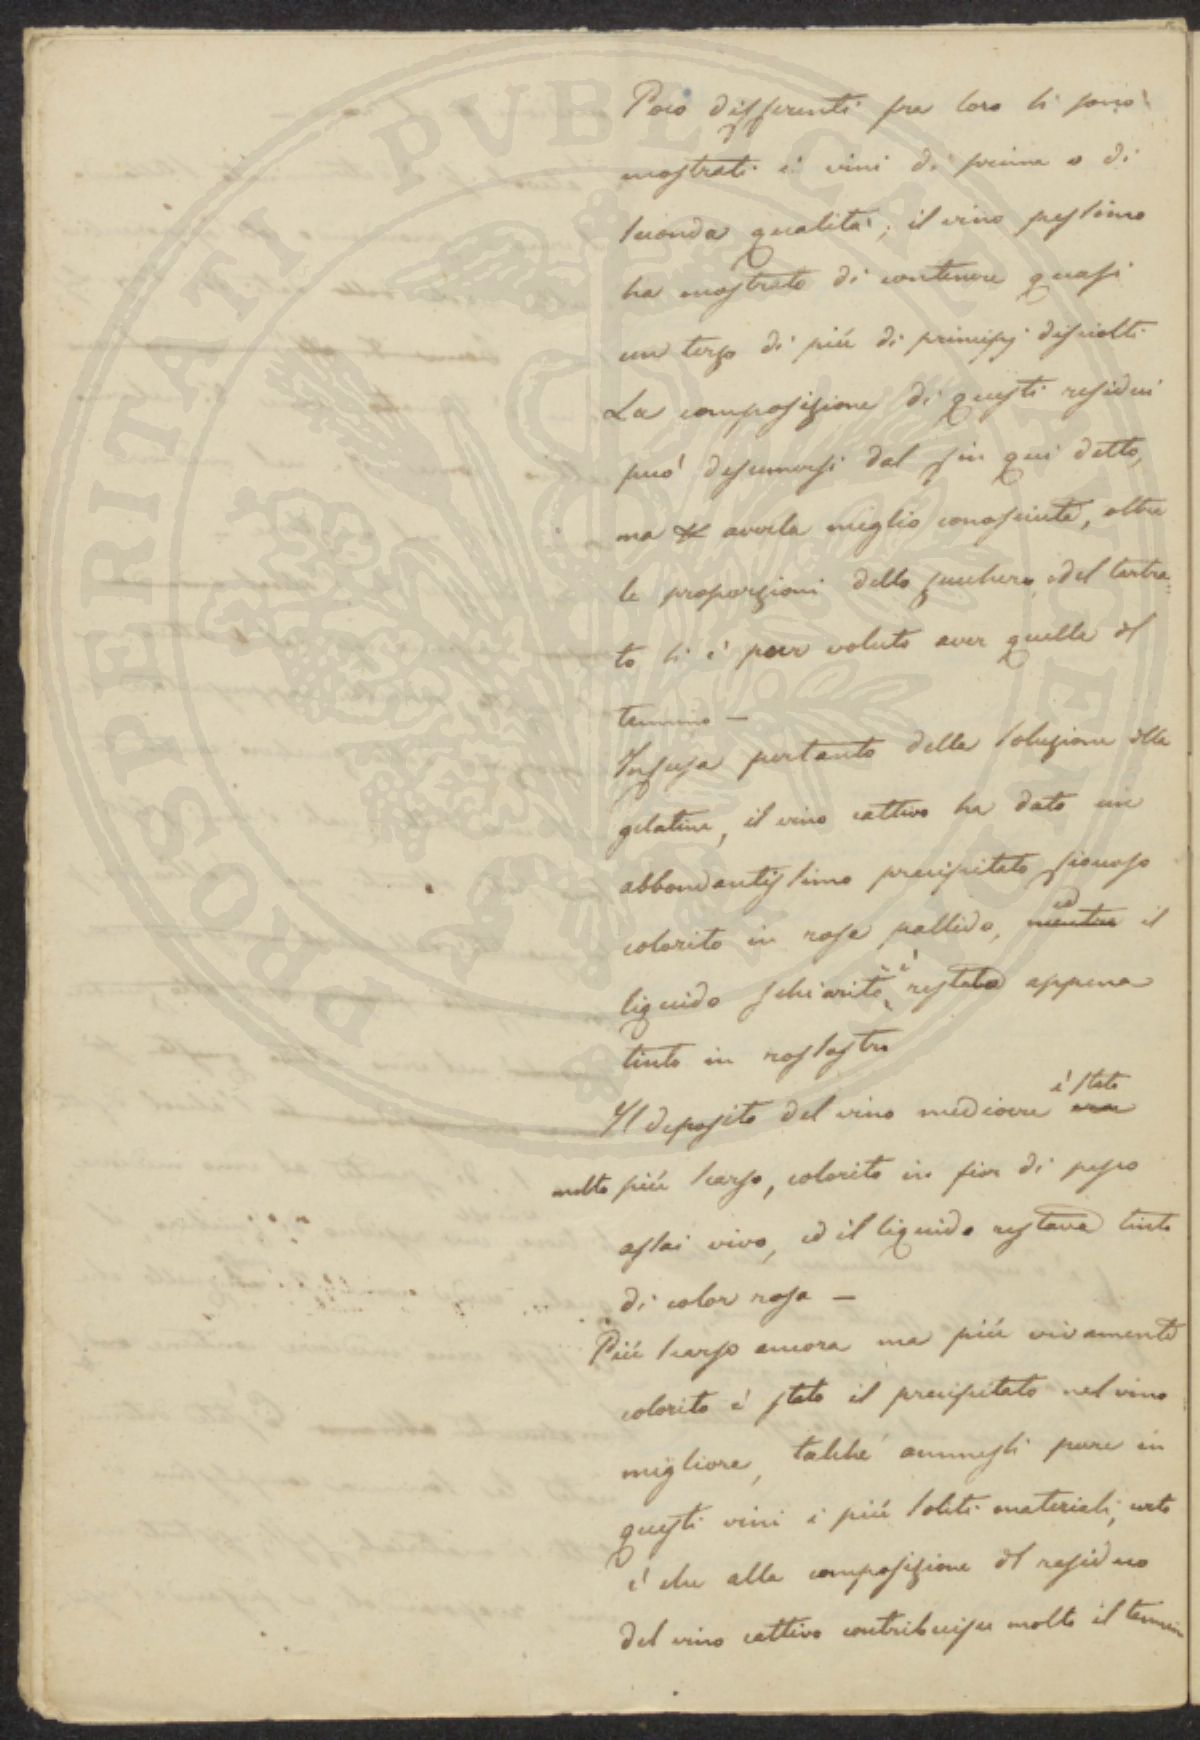 Poco differenti fra loro si sono
mostrati i vini di prima e di
seconda qualità; il vino pessimo
ha mostrato di contenere quasi
un terzo di più di principj disciolti
La composizione di questi residui
può desumersi dal fin qui detto,
ma averla meglio conosciuta, oltre
le proporzioni dello zucchero, e del tartra-
to si è pur voluto aver quella del
tannino —
Infusa pertanto della soluzione della
gelatina, il vino cattivo ha dato un
abbondantissimo precipitato fioccoso
colorito in rosa pallido, mentre ed il
liquido schiarito, è restato appena
tinto in rossastro
Il deposito del vino mediocre era è stato
molto più scarso, colorito in fior di pesco
assai vivo, ed il liquido restava tinto
di color rosa —
Più scarso ancora ma più vivamente
colorito è stato il precipitato nel vino
migliore, talché ammessi pure in
questi vini i più soliti materiali, certo
è che alla composizione del residuo
del vino cattivo contribuisce molto il tannino
PROSPERITATI PUBLICAE AUGENDAE